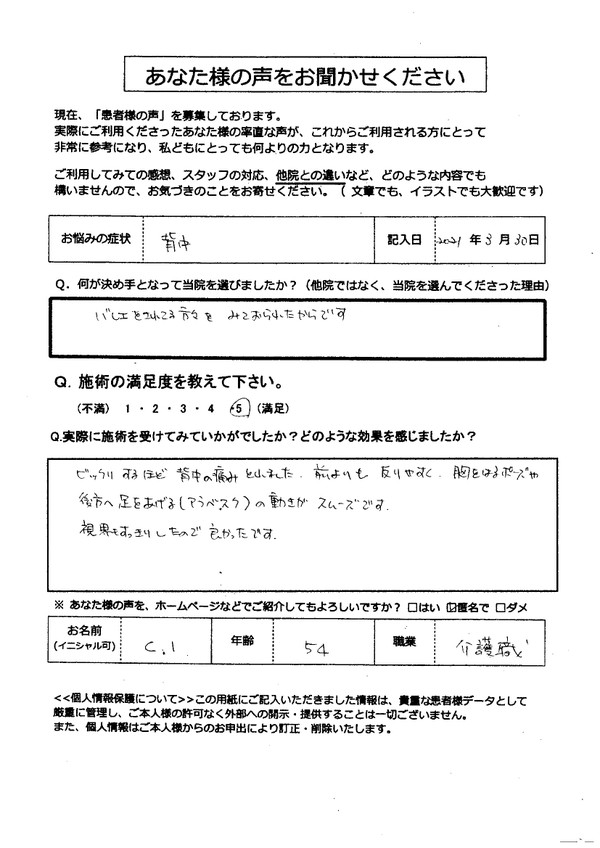 あなた様の声をお聞かせください
現在、「患者様の声」を募集しております。
実際にご利用くださったあなた様の率直な声が、これからご利用される方にとって
非常に参考になり、私どもにとっても何よりの力となります。
ご利用してみての感想、スタッフの対応、他院との違いなど、どのような内容でも
構いませんので、お気づきのことをお寄せください。（ 文章でも、イラストでも大歓迎です）
お悩みの症状 背中 記入日 2021 年 3 月 30 日
Q．何が決め手となって当院を選びましたか？（他院ではなく、当院を選んでくださった理由）
バレエをされてる方々を みておられたからです
Q．施術の満足度を教えて下さい。
（不満） 1 ・ 2 ・ 3 ・ 4 ・5 （満足）
Q.実際に施術を受けてみていかがでしたか？どのような効果を感じましたか？
ビックリするほど 背中の痛みとれました．前よりも 反りやすく．胸をはるポーズや
後方へ足をあげる(アラベスク)の動きが スムーズです．
視界もすっきりしたので 良かったです．
※ あなた様の声を、ホームページなどでご紹介してもよろしいですか？ □はい ☑匿名で □ダメ
お名前 (イニシャル可) C.I 年齢 54 職業 介護職
<<個人情報保護について>>この用紙にご記入いただきました情報は、貴重な患者様データとして
厳重に管理し、ご本人様の許可なく外部への開示・提供することは一切ございません。
また、個人情報はご本人様からのお申出により訂正・削除いたします。